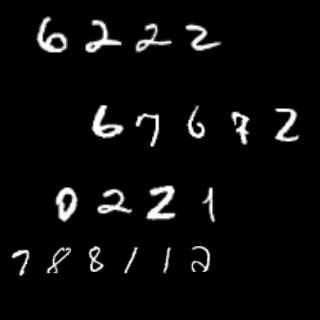 6222
67672
0221
788112